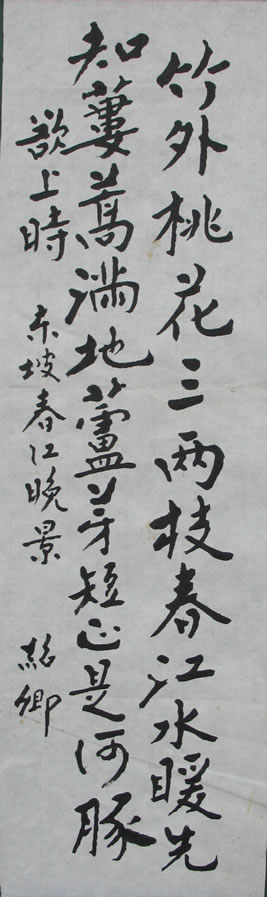 竹外桃花三两枝春江水暖先
知蔞蒿滿地蘆芽短正是河豚
欲上時 东坡春江晚景 紹卿